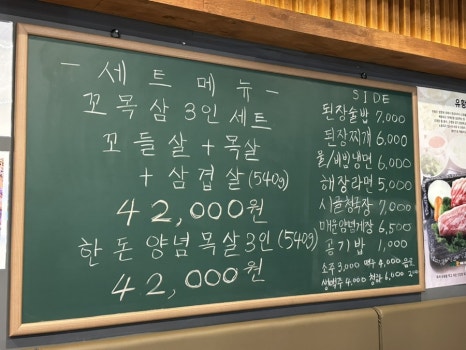 - 세트메뉴 -
꼬목삼 3인 세트
꼬들살 + 목살
+ 삼겹살 (540g)
42,000원
한돈 양념목살 3인 (540g)
42,000원
SIDE
된장술밥 7,000
된장찌개 6,000
물/비빔냉면 6,000
해장라면 5,000
시골청국장 7,000
매운양념게장 6,500
공기밥 1,000
소주 3,000 맥주 4,000 음료
4,000 청하 6,000
유황